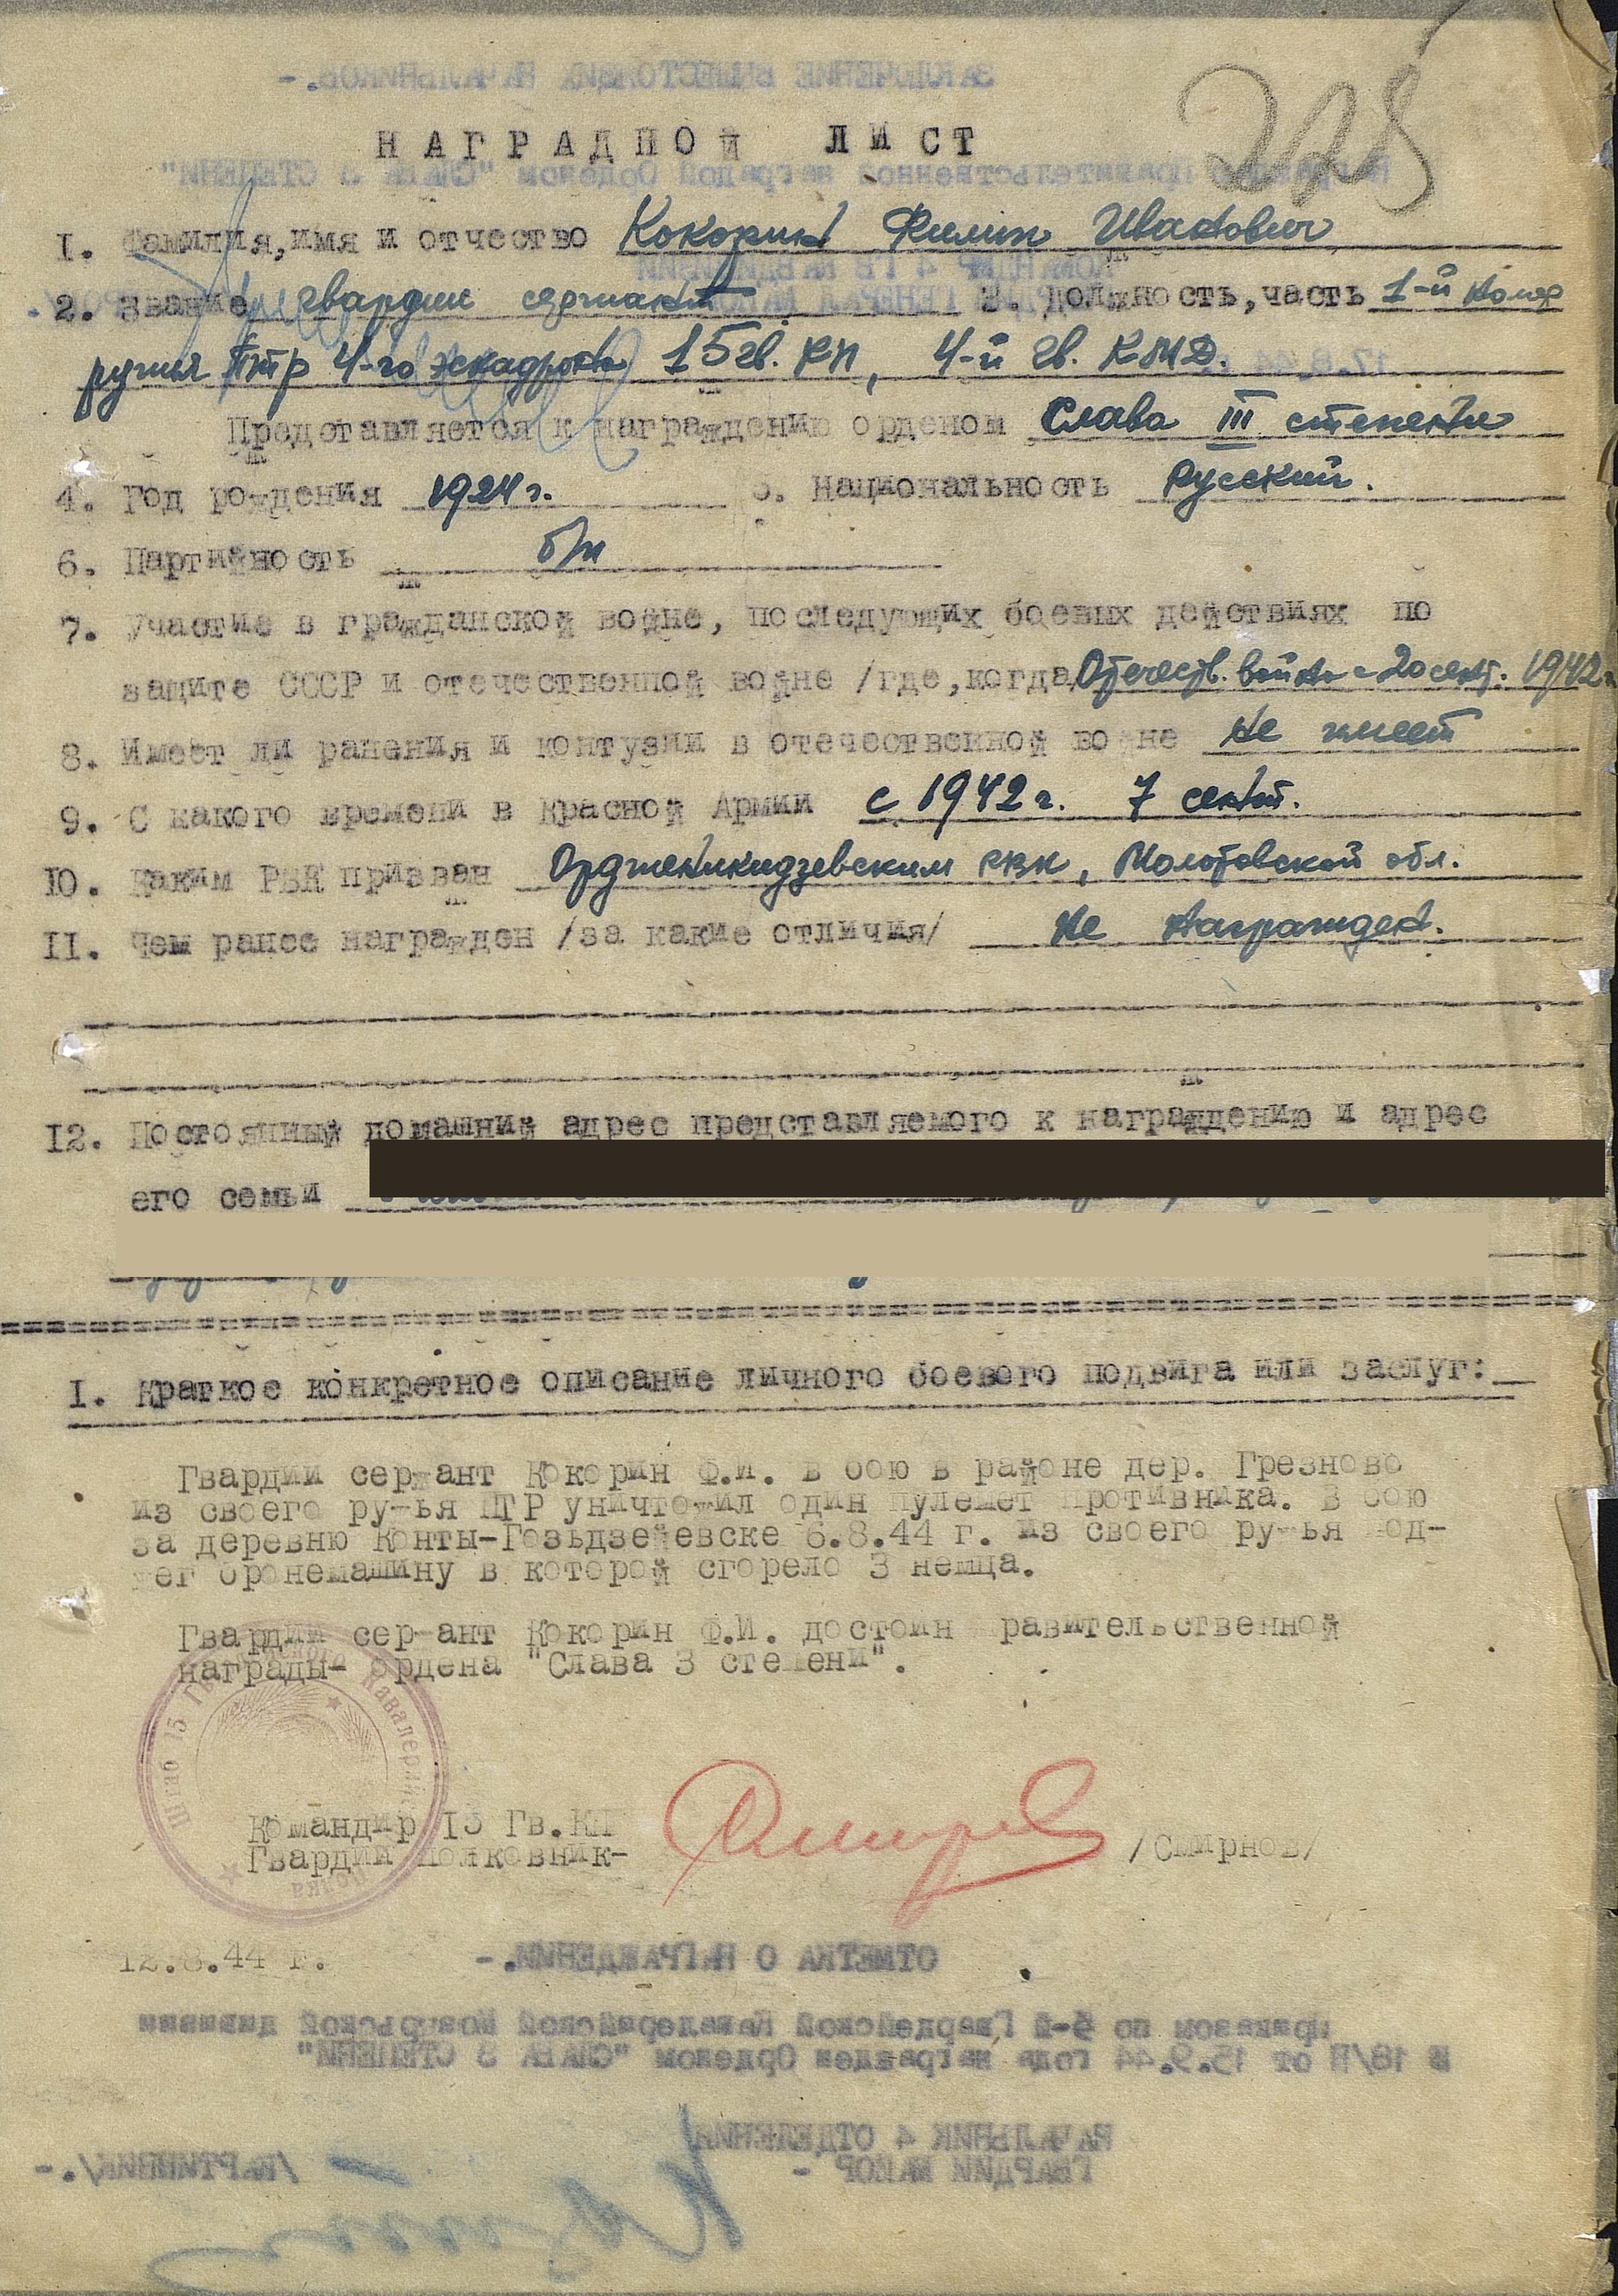 228
НАГРАДНОЙ ЛИСТ
I. Фамилия, имя и отчество Кокорин Филип Иванович
2. Звание гвардии сержант 3. Должность, часть 1-й номер
ружья ПТР 4-го эскадрона 15 гв. КП, 4-й гв. ККД.
Представляется к награждению орденом Слава III степени
4. Год рождения 1924 г. 5. Национальность Русский.
6. Партийность б/п
7. Участие в гражданской войне, последующих боевых действиях по
защите СССР и отечественной войне /где, когда/ Отечеств. война с 20 сент. 1942 г.
8. Имеет ли ранения и контузии в отечественной во не не имеет
9. С какого времени в Красной Армии с 1942 г. 7 сент.
IO. Каким РВК призван Орджоникидзевским РВК, Молотовской обл.
II. Чем ранее награжден /за какие отличия/ Не награжден.
I2. Постоянный домашний адрес представляемого к награждению и адрес
его семьи
I. Краткое конкретное описание личного боевого подвига или заслуг:
Гвардии сержант Кокорин Ф.И. в бою в районе дер. Грезново
из своего ру-ья ПТР уничтожил один пулемет противника. В бою
за деревню Конты-Гозьдзеевске 6.8.44 г. из своего ру-ья под-
жег бронемашину в которой сгорело 3 немца.
Гвардии сер-ант Кокорин Ф.И. достоин правительственной
награды- ордена "Слава 3 степени".
Штаб 15 Гвардейского Кавалерийского полка
Командир I5 Гв.КП
Гвардии полковник- /Смирнов/
12.8.44 г.
ОТМЕТКА О НАГРАЖДЕНИИ.-
Приказом по 4-й Гвардейской Кавалерийской Мозырьской дивизии
№ 18/Н от 15.9.44 года награжден Орденом "СЛАВА 3 СТЕПЕНИ"
НАЧАЛЬНИК 4 ОТДЕЛЕНИЯ
ГВАРДИИ МАЙОР -